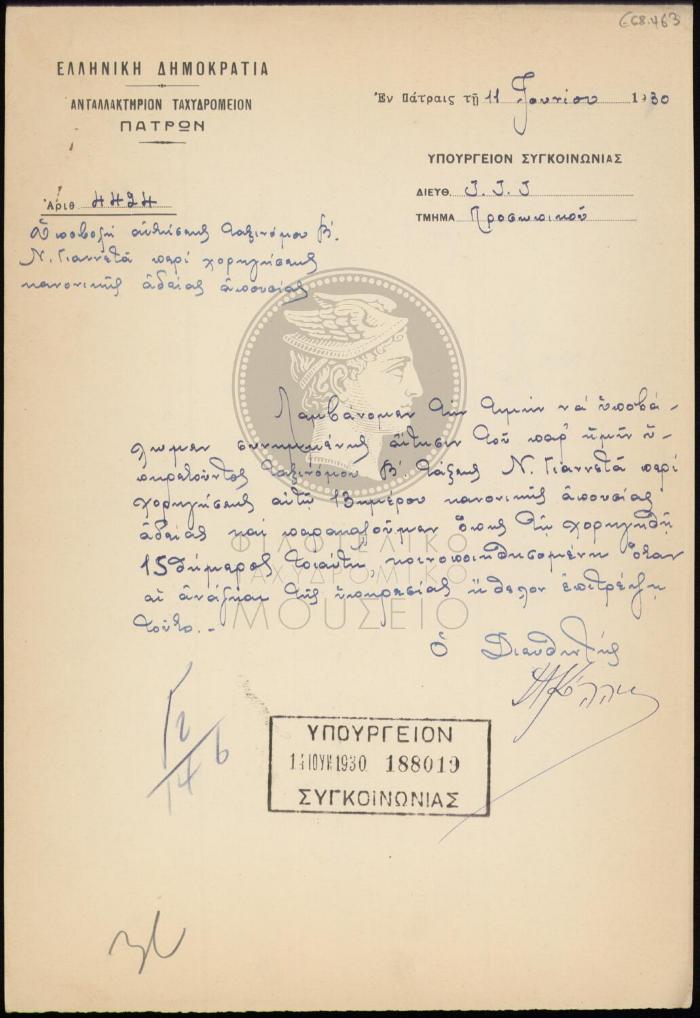 668.463
ΕΛΛΗΝΙΚΗ ΔΗΜΟΚΡΑΤΙΑ
ΑΝΤΑΛΛΑΚΤΗΡΙΟΝ ΤΑΧΥΔΡΟΜΕΙΟΝ
ΠΑΤΡΩΝ
Ἐν Πάτραις τῇ 11 Ἰουνίου 1930
ΥΠΟΥΡΓΕΙΟΝ ΣΥΓΚΟΙΝΩΝΙΑΣ
ΔΙΕΥΘ. Τ.Τ.Τ
ΤΜΗΜΑ Προσωπικοῦ
Ἀριθ 4424
Ὑποβολή αἰτήσεως ταξινόμου Β'.
Ν. Γιαννετᾶ περί χορηγήσεως
κανονικῆς ἀδείας ἀπουσίας
Λαμβάνομεν τήν τιμήν νά ὑποβά-
λωμεν συνημμένως αἴτησιν τοῦ παρ' ἡμῖν ὑ-
πηρετοῦντος ταξινόμου Β' τάξεως Ν. Γιαννετᾶ περί
χορηγήσεως αὐτῷ 15ημέρου κανονικῆς ἀπουσίας
ἀδείας καί παρακαλοῦμεν ὅπως τῷ χορηγηθῇ
15θήμερος τοιαύτη, ὅταν
αἱ ἀνάγκαι τῆς ὑπηρεσίας ἤθελον ἐπιτρέψῃ
τοῦτο.-
Ὁ Διευθυντής
ΦΙΛΟΤΕΛΙΚΟ
ΤΑΧΥΔΡΟΜΙΚΟ
ΜΟΥΣΕΙΟ
12
14 6
ΥΠΟΥΡΓΕΙΟΝ
14 ΙΟΥΝ 1930 188019
ΣΥΓΚΟΙΝΩΝΙΑΣ